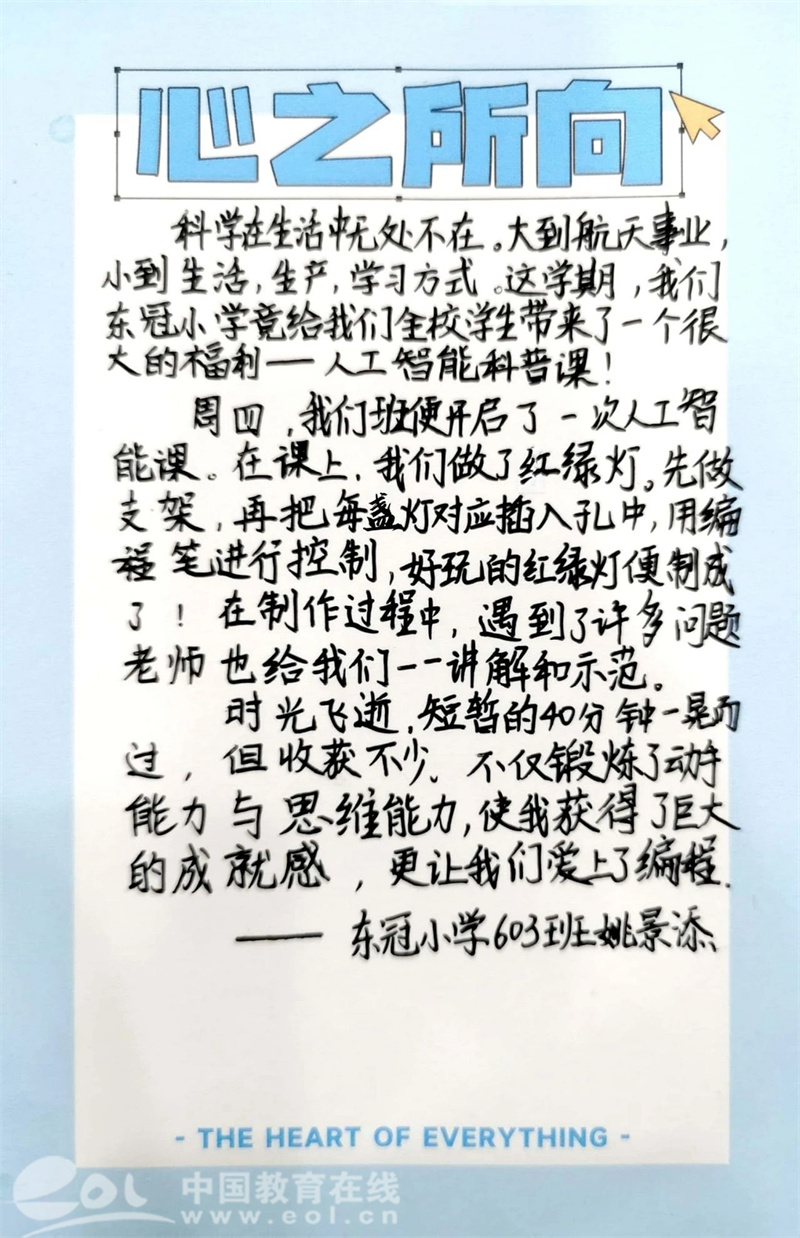 心之所向
科学在生活中无处不在。大到航天事业，
小到生活，生产，学习方式。这学期，我们
东冠小学竟给我们全校学生带来了一个很
大的福利——人工智能科普课！
周四，我们班便开启了一次人工智
能课。在课上，我们做了红绿灯。先做
支架，再把每盏灯对应插入孔中，用编
程笔进行控制，好玩的红绿灯便制成
了！在制作过程中，遇到了许多问题
老师也给我们一一讲解和示范。
时光飞逝，短暂的40分钟一晃而
过，但收获不少。不仅锻炼了动手
能力与思维能力，使我获得了巨大
的成就感，更让我们爱上了编程.
——东冠小学603班姚景添
- THE HEART OF EVERYTHING -
eol 中国教育在线
www.eol.cn